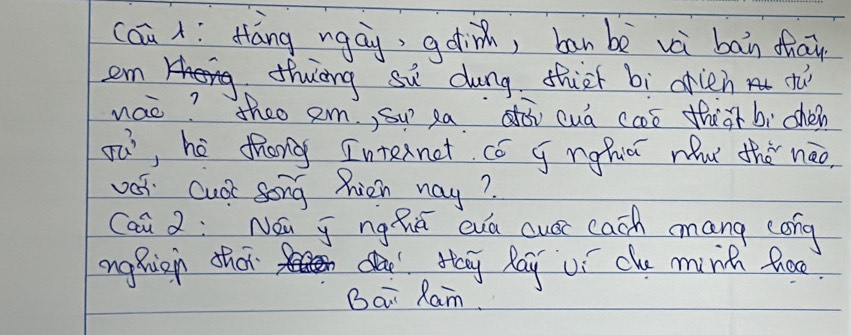 Câu 1: Hàng ngày, gđình, bạn bè và bản thân
em thường sử dụng thiết bị điện tử
nào? Theo em, sự ra đời của các thiết bị điện
tử, hệ thống Internet có ý nghĩa như thế nào
với cuộc sống hiện nay?
Câu 2: Nêu ý nghĩa của cuộc cách mạng công
nghiệp thời đại. Hãy lấy ví dụ minh hoạ.
Bài làm.